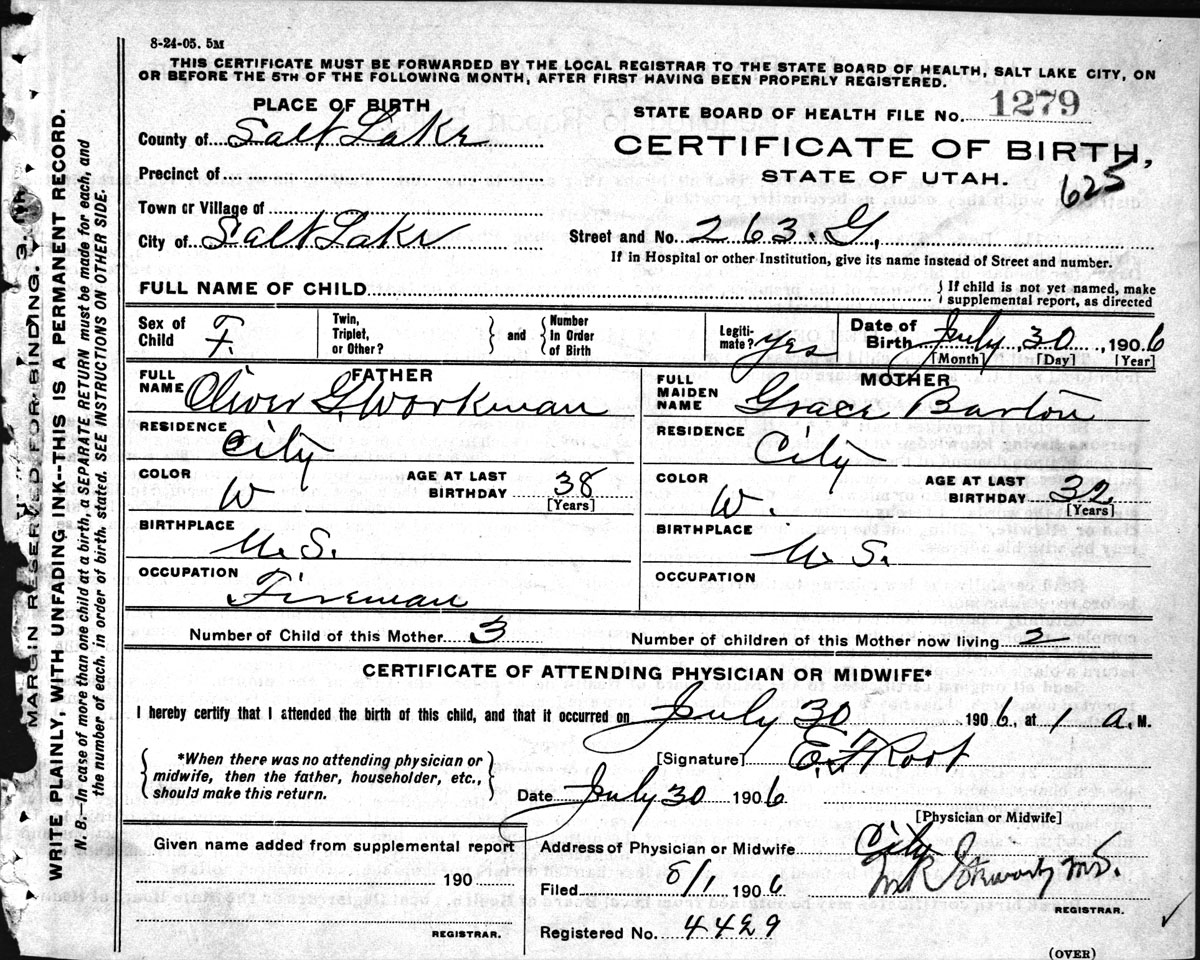 8-24-05. 5M
THIS CERTIFICATE MUST BE FORWARDED BY THE LOCAL REGISTRAR TO THE STATE BOARD OF HEALTH, SALT LAKE CITY, ON
OR BEFORE THE 5TH OF THE FOLLOWING MONTH, AFTER FIRST HAVING BEEN PROPERLY REGISTERED.
PLACE OF BIRTH
STATE BOARD OF HEALTH FILE No. 1279
County of Salt Lake
CERTIFICATE OF BIRTH,
Precinct of
STATE OF UTAH.
625
Town or Village of
City of Salt Lake
Street and No. 263. G,
If in Hospital or other Institution, give its name instead of Street and number.
FULL NAME OF CHILD
{ If child is not yet named, make
supplemental report, as directed
Sex of Child F.
Twin, Triplet, or Other? } and { Number In Order of Birth
Legitimate? Yes
Date of Birth July 30, 1906
[Month] [Day] [Year]
FATHER
FULL NAME Oliver G. Workman
RESIDENCE City
COLOR W
AGE AT LAST BIRTHDAY 38
[Years]
BIRTHPLACE U. S.
OCCUPATION Fireman
MOTHER
FULL MAIDEN NAME Grace Barton
RESIDENCE City
COLOR W.
AGE AT LAST BIRTHDAY 32
[Years]
BIRTHPLACE U S.
OCCUPATION
Number of Child of this Mother 3
Number of children of this Mother now living 2
CERTIFICATE OF ATTENDING PHYSICIAN OR MIDWIFE*
I hereby certify that I attended the birth of this child, and that it occurred on July 30 1906, at 1 a. M.
{ *When there was no attending physician or
midwife, then the father, householder, etc.,
should make this return. }
[Signature] E. F. Root
Date July 30 1906
[Physician or Midwife]
Given name added from supplemental report
190
REGISTRAR.
Address of Physician or Midwife City
Filed 8/1 1906
REGISTRAR.
Registered No. 4429
(OVER)
MARGIN RESERVED FOR BINDING.
WRITE PLAINLY, WITH UNFADING INK--THIS IS A PERMANENT RECORD.
N. B.—In case of more than one child at a birth, a SEPARATE RETURN must be made for each, and
the number of each, in order of birth, stated. SEE INSTRUCTIONS ON OTHER SIDE.